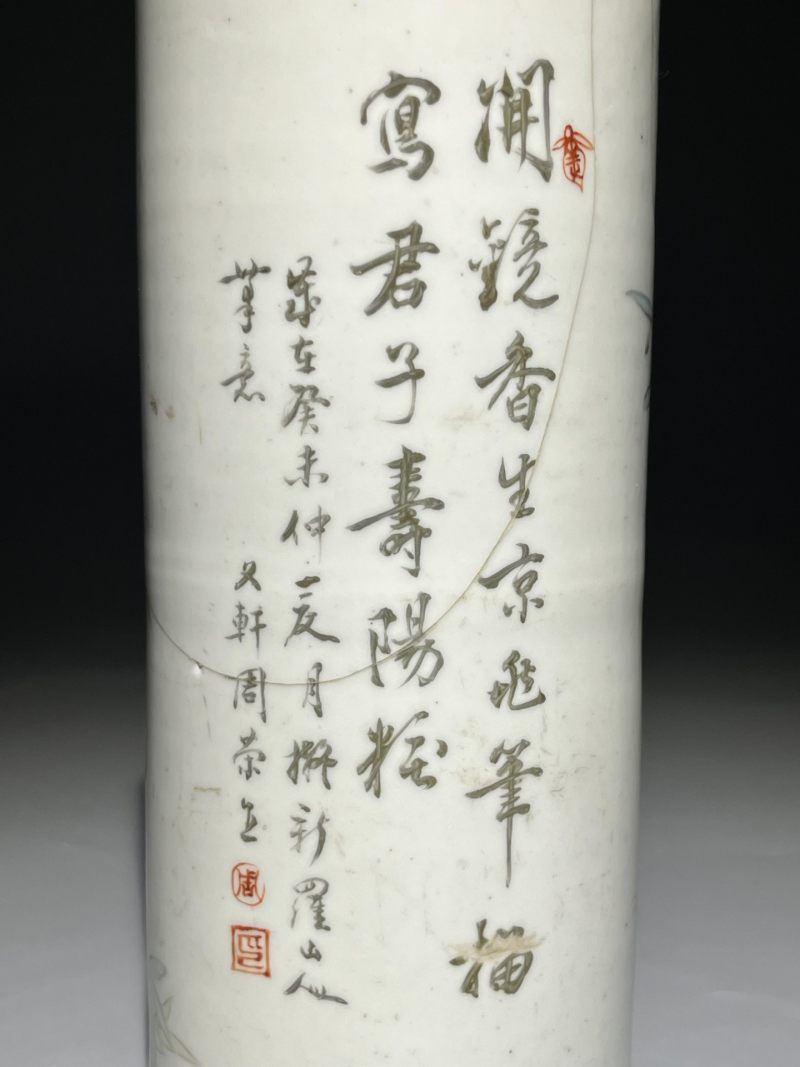 開鏡香生京兆筆描
寫君子壽陽粧
歲在癸未仲夏月擬新羅山人
筆意
軒周榮
周
印